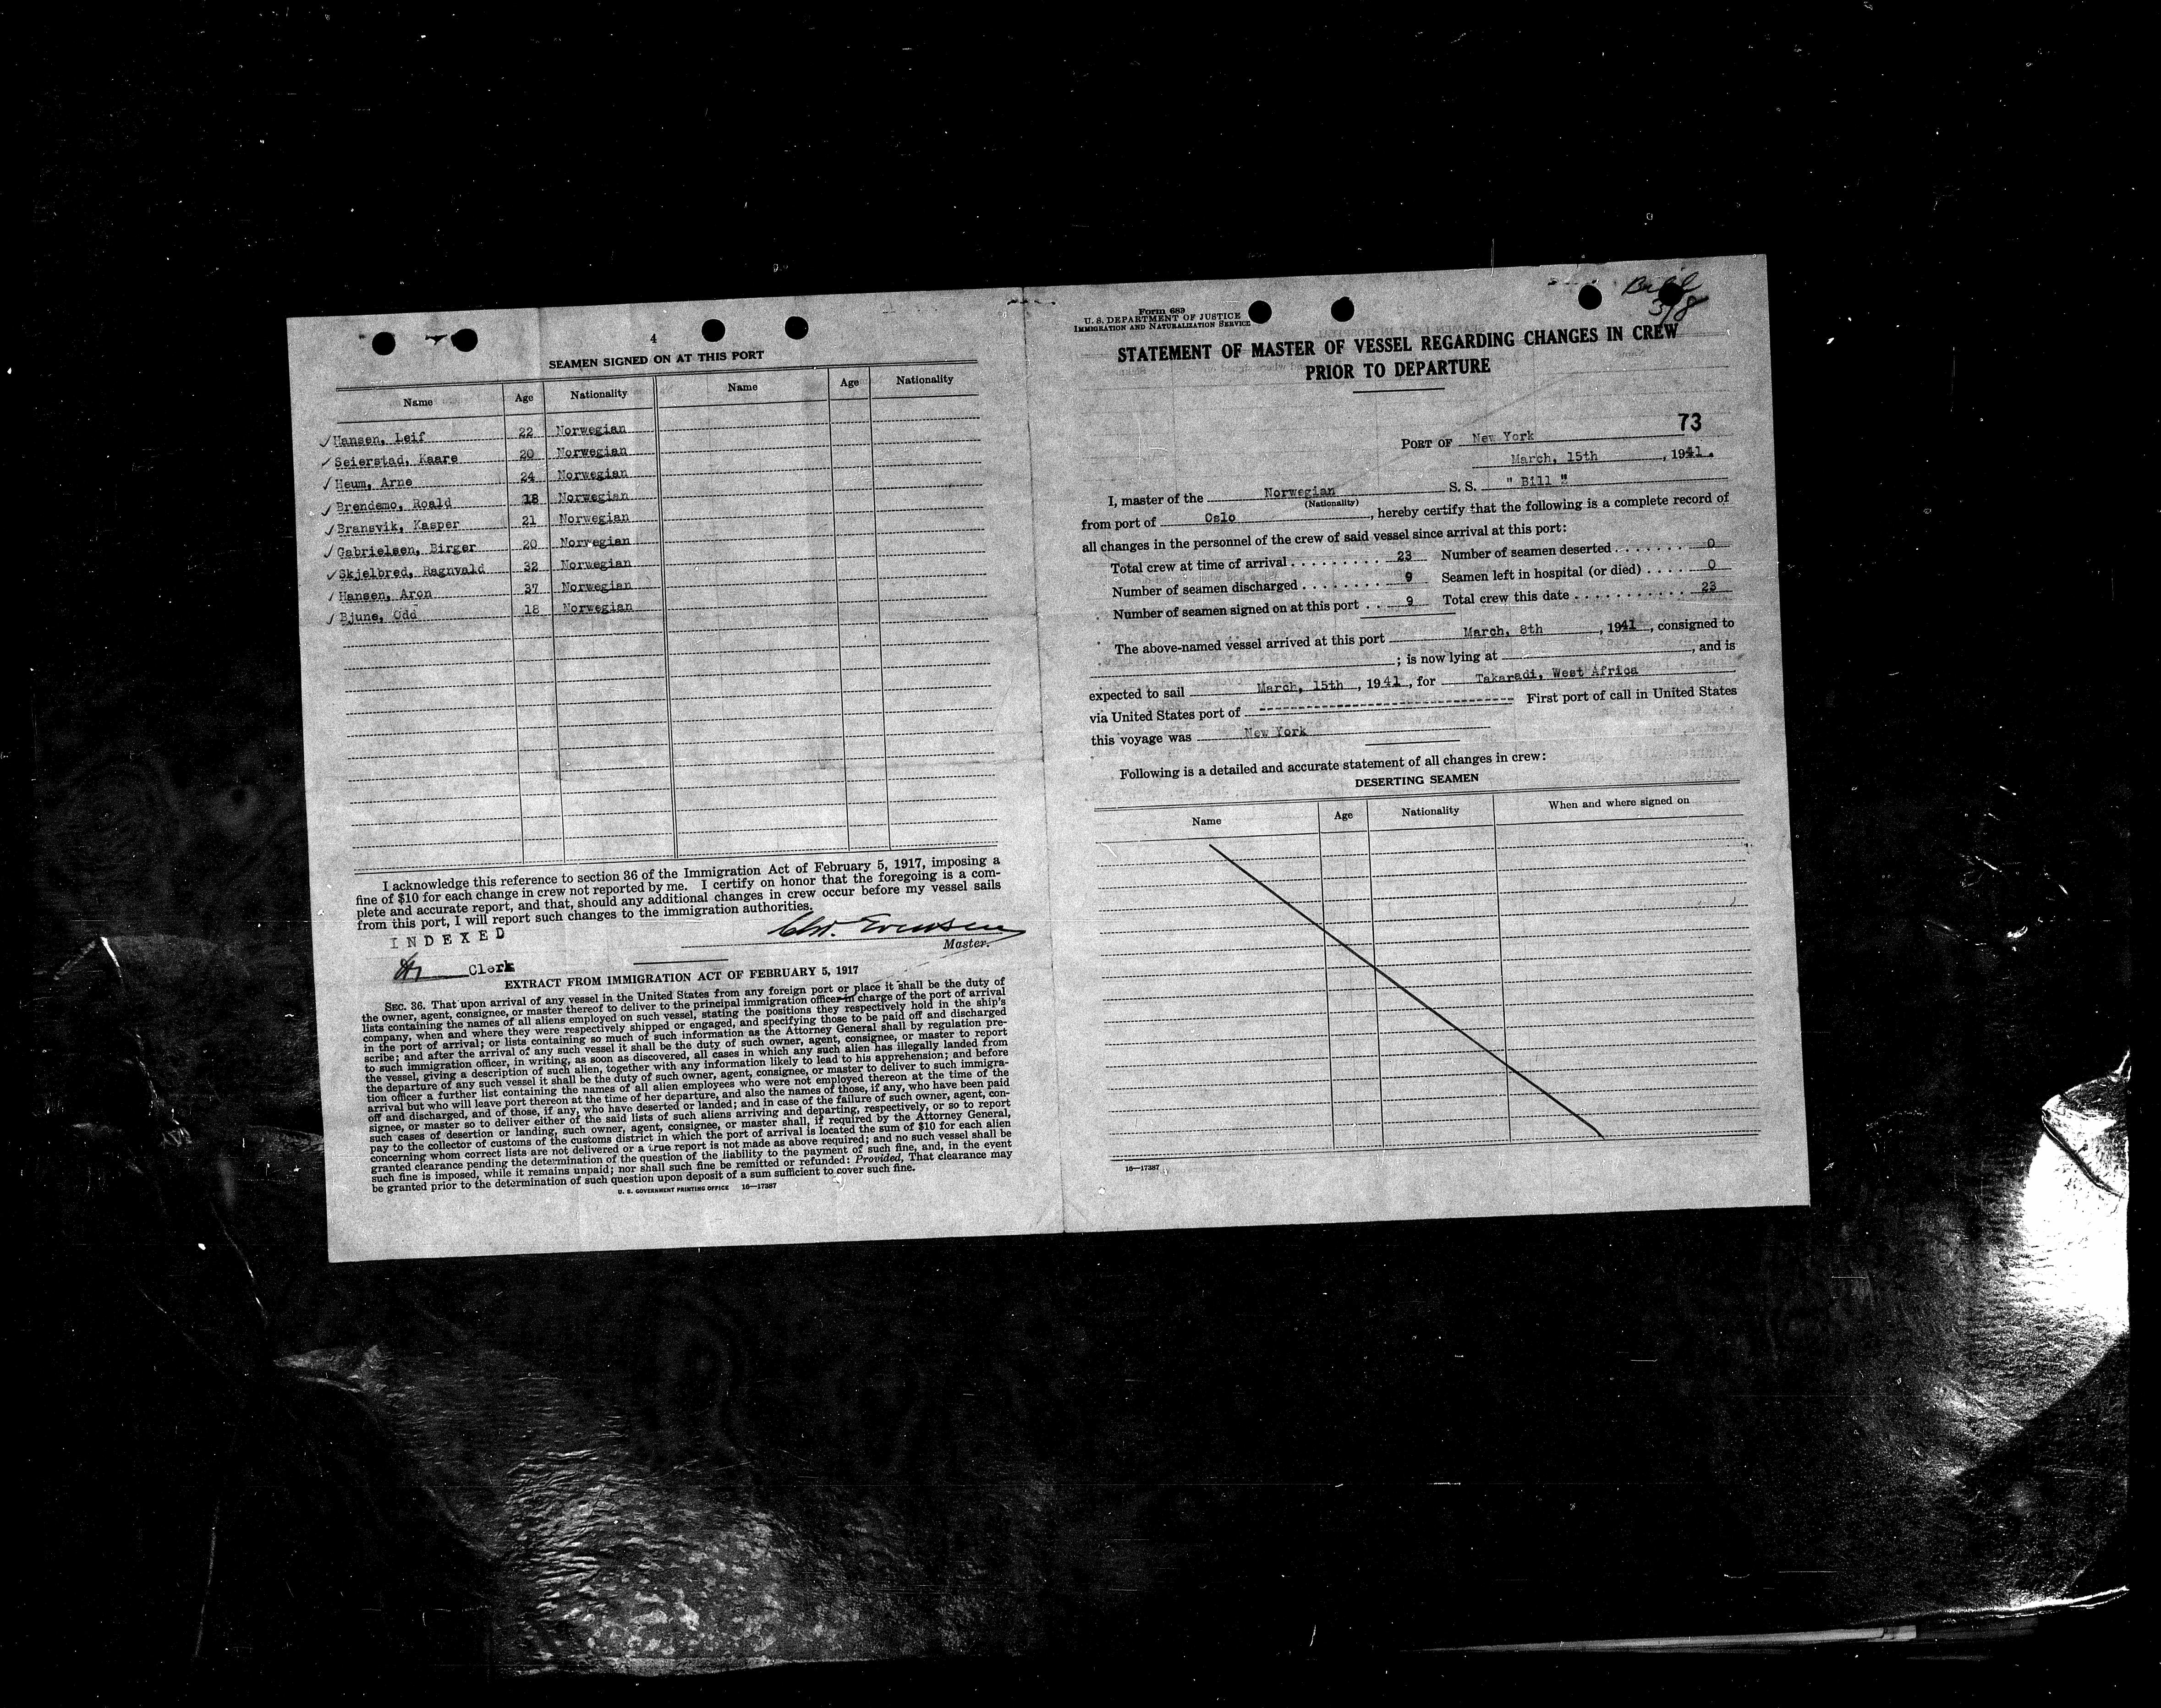 4
SEAMEN SIGNED ON AT THIS PORT
Name Age Nationality Name Age Nationality
✓ Hansen, Leif 22 Norwegian
✓ Seierstad, Kaare 20 Norwegian
✓ Heum, Arne 24 Norwegian
✓ Brendemo, Roald 18 Norwegian
✓ Bransvik, Kasper 21 Norwegian
✓ Gabrielsen, Birger 20 Norwegian
✓ Skjelbred, Ragnvald 32 Norwegian
✓ Hansen, Aron 37 Norwegian
✓ Bjune, Odd 18 Norwegian
I acknowledge this reference to section 36 of the Immigration Act of February 5, 1917, imposing a
fine of $10 for each change in crew not reported by me. I certify on honor that the foregoing is a com-
plete and accurate report, and that, should any additional changes in crew occur before my vessel sails
from this port, I will report such changes to the immigration authorities.
INDEXED
Master.
Clerk
EXTRACT FROM IMMIGRATION ACT OF FEBRUARY 5, 1917
SEC. 36. That upon arrival of any vessel in the United States from any foreign port or place it shall be the duty of
the owner, agent, consignee, or master thereof to deliver to the principal immigration officer in charge of the port of arrival
lists containing the names of all aliens employed on such vessel, stating the positions they respectively hold in the ship's
company, when and where they were respectively shipped or engaged, and specifying those to be paid off and discharged
in the port of arrival; or lists containing so much of such information as the Attorney General shall by regulation pre-
scribe; and after the arrival of any such vessel it shall be the duty of such owner, agent, consignee, or master to report
to such immigration officer, in writing, as soon as discovered, all cases in which any such alien has illegally landed from
the vessel, giving a description of such alien, together with any information likely to lead to his apprehension; and before
the departure of any such vessel it shall be the duty of such owner, agent, consignee, or master to deliver to such immigra-
tion officer a further list containing the names of all alien employees who were not employed thereon at the time of the
arrival but who will leave port thereon at the time of her departure, and also the names of those, if any, who have been paid
off and discharged, and of those, if any, who have deserted or landed; and in case of the failure of such owner, agent, con-
signee, or master so to deliver either of the said lists of such aliens arriving and departing, respectively, or so to report
such cases of desertion or landing, such owner, agent, consignee, or master shall, if required by the Attorney General,
pay to the collector of customs of the customs district in which the port of arrival is located the sum of $10 for each alien
concerning whom correct lists are not delivered or a true report is not made as above required; and no such vessel shall be
granted clearance pending the determination of the question of the liability to the payment of such fine, and, in the event
such fine is imposed, while it remains unpaid; nor shall such fine be remitted or refunded: Provided, That clearance may
be granted prior to the determination of such question upon deposit of a sum sufficient to cover such fine.
U. S. GOVERNMENT PRINTING OFFICE 16—17387
Bill
3/8
Form 689
U. S. DEPARTMENT OF JUSTICE
IMMIGRATION AND NATURALIZATION SERVICE
STATEMENT OF MASTER OF VESSEL REGARDING CHANGES IN CREW
PRIOR TO DEPARTURE
73
PORT OF New York
March, 15th, 1941.
I, master of the Norwegian S. S. " Bill "
(Nationality)
from port of Oslo, hereby certify that the following is a complete record of
all changes in the personnel of the crew of said vessel since arrival at this port:
Total crew at time of arrival 23 Number of seamen deserted 0
Number of seamen discharged 9 Seamen left in hospital (or died) 0
Number of seamen signed on at this port 9 Total crew this date 23
The above-named vessel arrived at this port March, 8th, 1941, consigned to
; is now lying at , and is
expected to sail March, 15th, 1941, for Takaradi, West Africa
via United States port of ---------- First port of call in United States
this voyage was New York
Following is a detailed and accurate statement of all changes in crew:
DESERTING SEAMEN
Name Age Nationality When and where signed on
16—17387